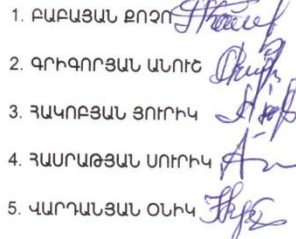 1. ԲԱԲԱՅԱՆ ՔՈՉՈ
2. ԳՐԻԳՈՐՅԱՆ ԱՆՈՒՇ
3. ՅԱԿՈԲՅԱՆ ՅՈՒՐԻԿ
4. ՅԱՍՐԱԹՅԱՆ ՍՈՒՐԻԿ
5. ՎԱՐԴԱՆՅԱՆ ՕՆԻԿ